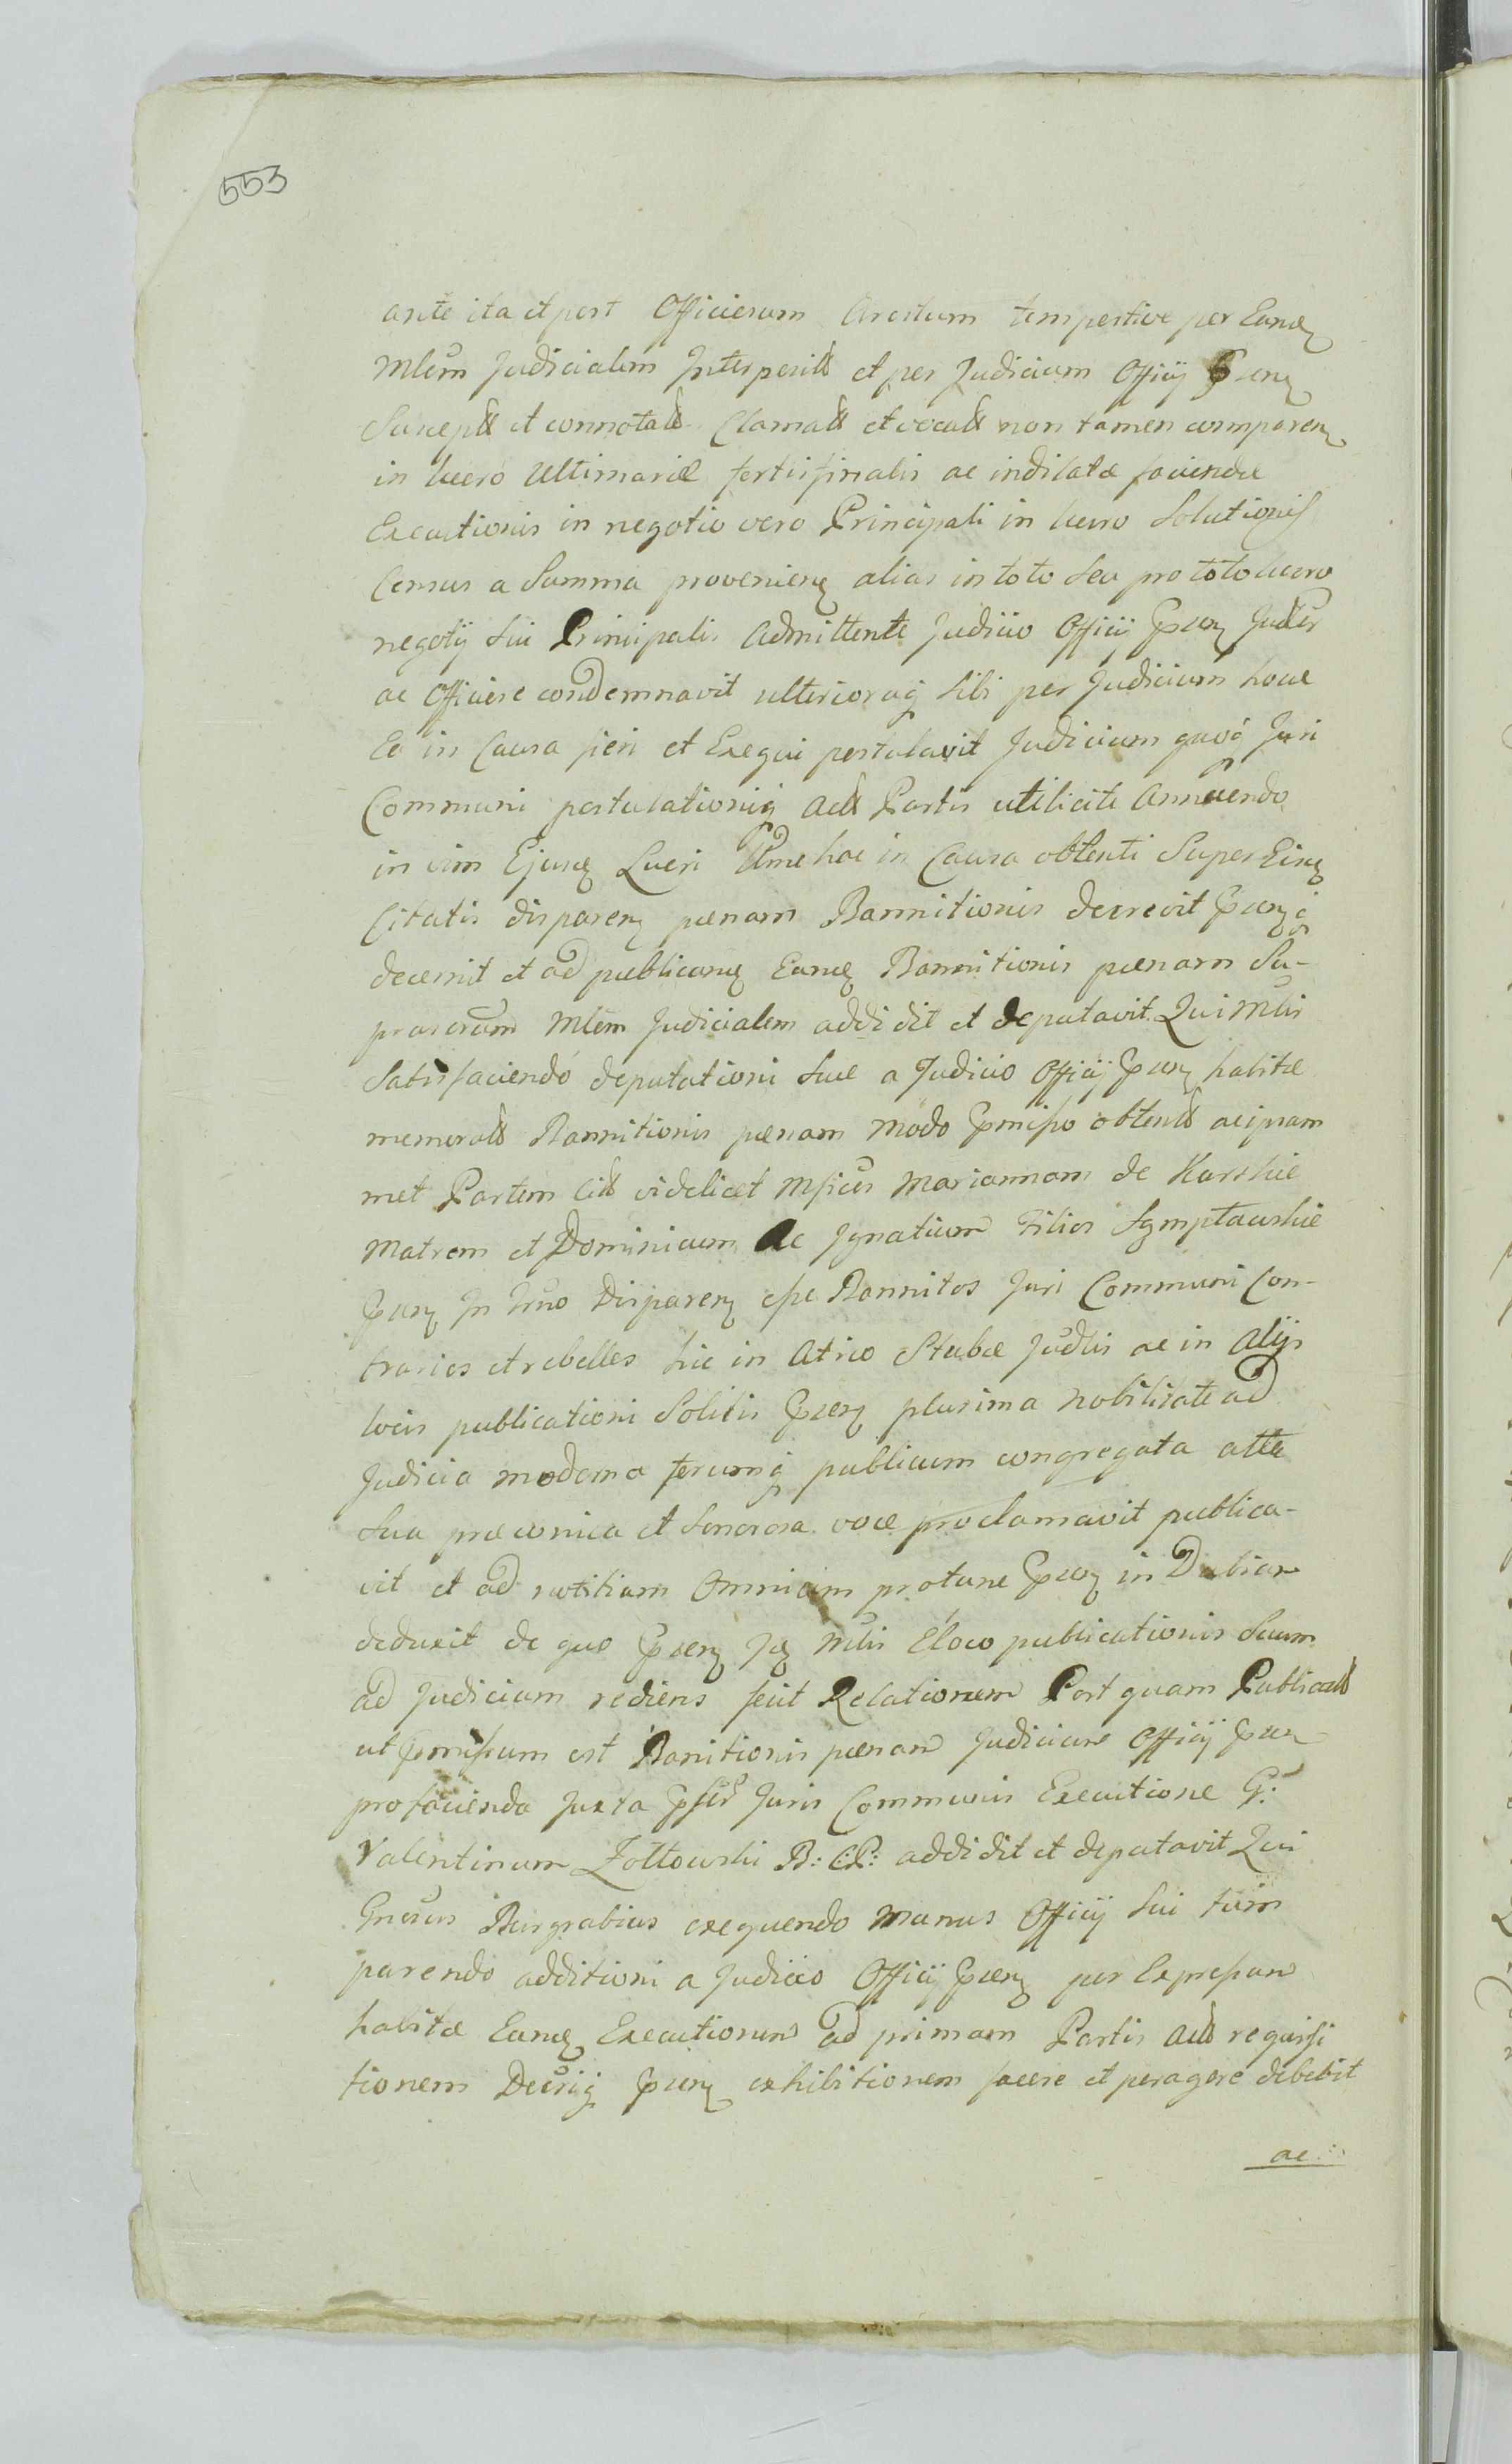 553
ante ita et post Officiosum Arestum tempestive per Eund
Mlem Judicialem Interposit et per Judicium Officij Psens
Suscept et connotat Clamat et vocat non tamen comparen
in lucro Ultimariæ fortis finalis ac indilatæ faciendæ
Executionis in negotio vero Principali in lucro Solutionis
Census a Summa provenien alias in toto Seu pro toto lucro
negotij Sui Principalis Admittente Judicio Officij Psen
ac Officiose condemnavit ulteriorq Sibi per Judicium hocce
Ea in Causa fieri et Exequi postulavit Judicium quoq Juri
Communi postulationiq Act Partis utilicite Annuendo
in vim Ejusd Lucri hac in Causa obtenti Super Eisd
Citatis disparen pænam Bannitionis decrevit Psenq
decernit et ad publicand Eand Bannitionis pænam Su-
Mlem Judicialem addidit et deputavit. Qui Mlis
Satisfaciendo deputationi Suæ a Judicio Officij Psen habitæ
memorat Bannitionis pænam modo Pmisso obtent acipsam
met Partem Cit videlicet Marjannam de Karskie
Matrem et Dominicum Ac Ignatium Filios
Psen In Trno Disparen esse Bannitos Juri Communi Con-
trarios et rebelles hic in Atrio Stubæ Judlis ac in Alijs
locis publicationi Solitis Psen plurima nobilitate ad
Judicia moderna forumq publicum congregata alta
Sua præconica et Sonorosa voce proclamavit publica-
vit et ad notitiam Omnium protunc Psen in
deduxit de quo Psen Id Mlis Eloco publicationis Suum
ad Judicium rediens fecit Relationem Post quam Publicat
ut Pmissum est Banitionis pænam Judicium Officij Psen
pro facienda Juxta Juris Communis Executione G:
Valentinum Zottowski B: C:P: addidit et deputavit Qui
Gnosus Burgrabius exequendo Munus Officij Sui tum
parendo additioni a Judicio Officij Psen per Expressum
habitæ Eand Executionem ad primam Partis Act requisi
tionem Decriq Psen exhibitionem facere et peragere debebit
ac